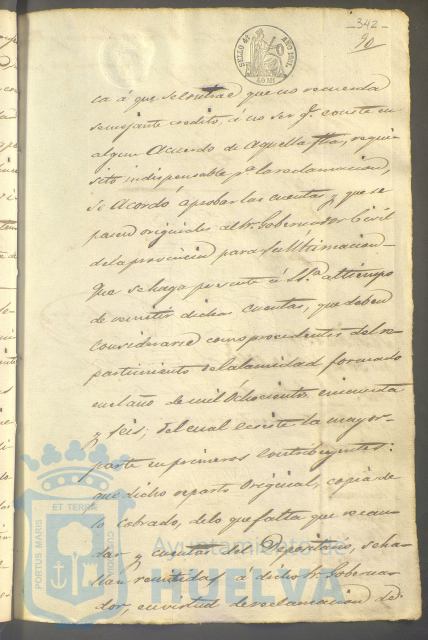 342
90
SELLO 4º AÑO 1857.
40 Ms
ca á que se retrae que no recuerda
semejante credito, á no ser q.e conste en
algun Acuerdo de aquella fha, requi
sito indispensable p.a la reclamacion,
se Acordó aprobar las cuentas y que se
pasen originales al Sr. Gobernador Civil
de la provincia para su Ultimacion
Que se haga presente á S.S.a al tiempo
de remitir dichas cuentas, que deben
considerarse como procedentes del re
partimiento de calamidad formado
en el año de mil Ochocientos cincuenta
y seis, del cual existe la mayor
parte en primeros contribuyentes:
que dicho reparto Original, copia de
lo cobrado, de lo que falta que recau
dar y cuentas del Depositario, se ha
llan remitidas á dicho Sr. Goberna
dor, en virtud de reclamacion de
PORTUS MARIS ET TERRÆ CUSTODIA
Ayuntamiento de
HUELVA